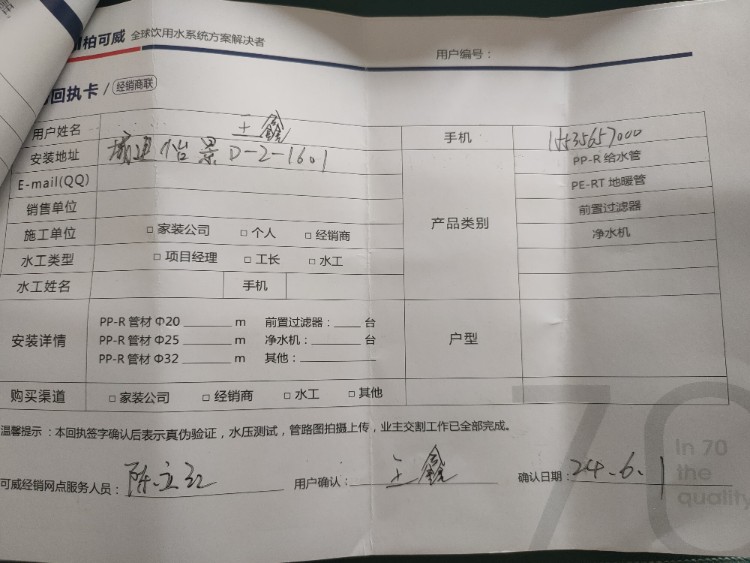 柏可威 全球饮用水系统方案解决者
用户编号：
回执卡 / 经销商联
用户姓名 王鑫 手机
安装地址 怡景 D-2-1601 PP-R 给水管
E-mail(QQ) PE-RT 地暖管
销售单位 产品类别 前置过滤器
施工单位 □ 家装公司 □ 个人 □ 经销商 净水机
水工类型 □ 项目经理 □ 工长 □ 水工
水工姓名 手机
安装详情 PP-R 管材 Φ20 ______ m 前置过滤器：____ 台 户型
PP-R 管材 Φ25 ______ m 净水机：______ 台
PP-R 管材 Φ32 ______ m 其他：________
购买渠道 □ 家装公司 □ 经销商 □ 水工 □ 其他
温馨提示：本回执签字确认后表示真伪验证，水压测试，管路图拍摄上传，业主交割工作已全部完成。
可威经销网点服务人员： 用户确认：王鑫 确认日期：24.6.1
70
In 70
the
quality